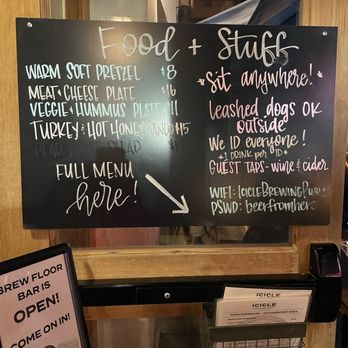 Food + Stuff
WARM SOFT PRETZEL $8
MEAT + CHEESE PLATE $16
VEGGIE + HUMMUS PLATE $11
TURKEY + HOT HONEY $15
FULL MENU
here!
Sit anywhere!
Leashed dogs OK
outside
We ID everyone!
*1 DRINK per ID*
GUEST TAPS - WINE & CIDER
WIFI: ICICLEBREWING
PSWD: beerfromhere
BREW FLOOR
BAR IS
OPEN!
COME ON IN!
ICICLE
ICICLE